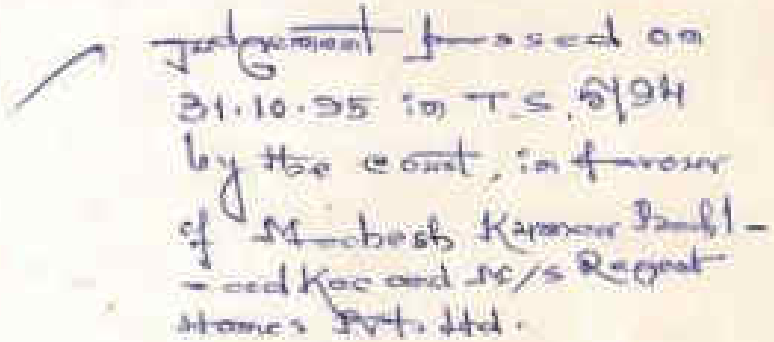 Judgement passed on
31.10.95 in T.S. 6/94
by the court, in favour
of Mahesh Kumar
and M/s Regent
Homes Pvt. Ltd.